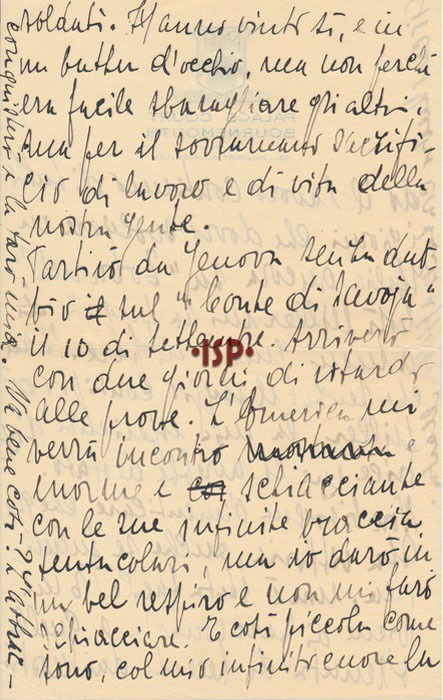 soldati. Hanno vinto sì, e in
un batter d'occhio, ma non perché
era facile sbaragliare gli altri,
ma per il sovrumano sacrifi-
cio di lavoro e di vita della
nostra gente.
Partirò da Genova senza dub-
bio sul "Conte di Savoja"
il 10 di settembre. Arriverò
con due giorni di ritardo
alle prove. L'America mi
verrà incontro e
enorme e schiacciante
con le sue infinite braccia
tentacolari, ma io darò in
un bel respiro e non mi farò
schiacciare. E così piccola come
sono, col mio infinito cuore la
conquisterò e la farò mia. Va bene così?
·ISP·
PALACE COURT
BOURNEMOUTH